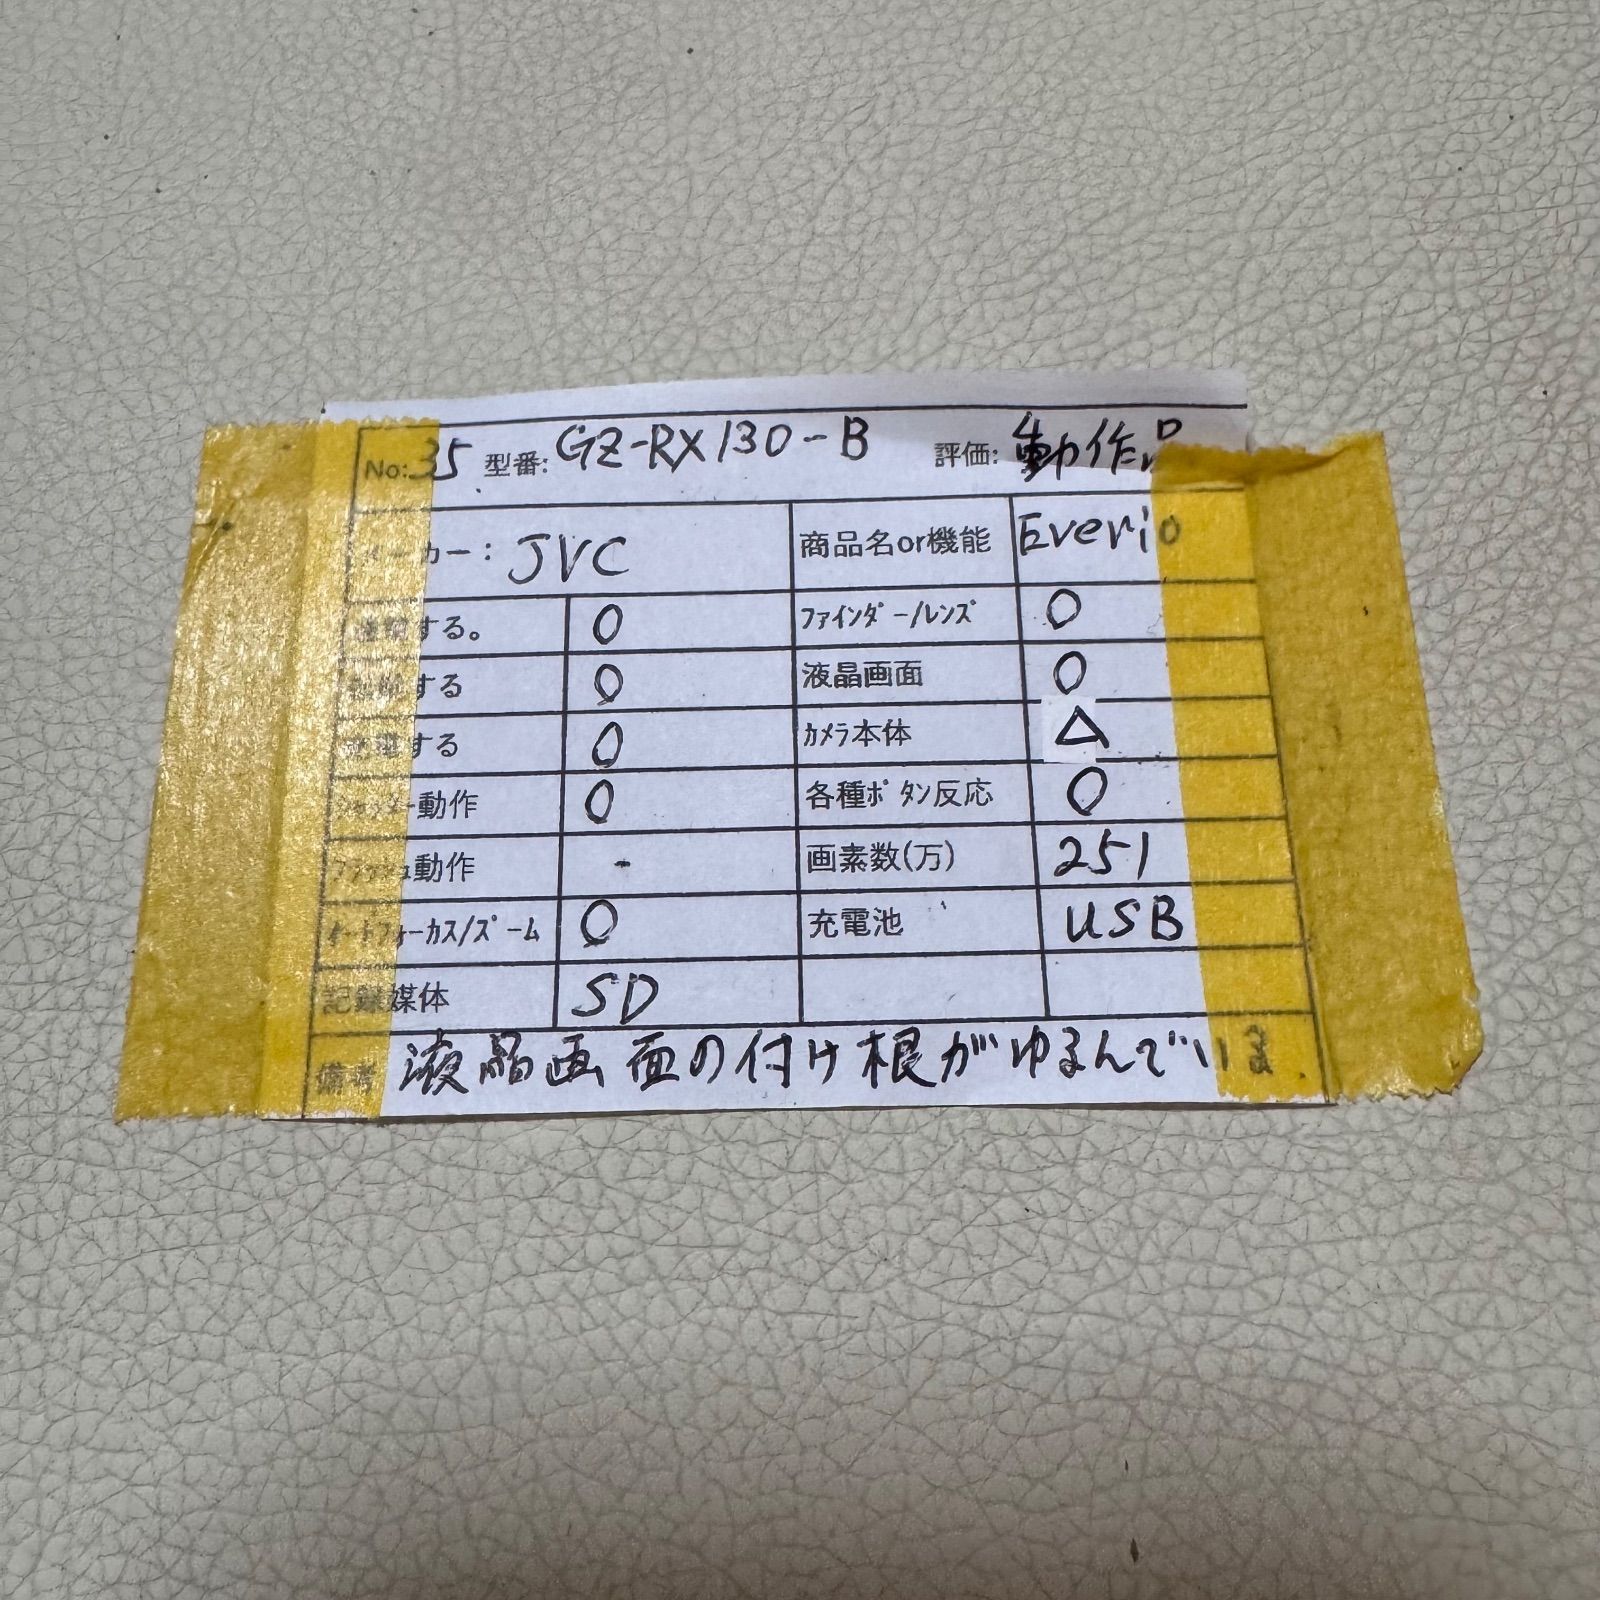 No: 35 型番: GZ-RX130-B 評価: 動作品
メーカー: JVC 商品名or機能 Everio
する。 〇 ファインダー/レンズ 〇
する 〇 液晶画面 〇
する 〇 カメラ本体 △
シャッター動作 〇 各種ボタン反応 〇
フラッシュ動作 - 画素数(万) 251
オートフォーカス/ズーム 〇 充電池 USB
記録媒体 SD
備考 液晶画面の付け根がゆるんでいま